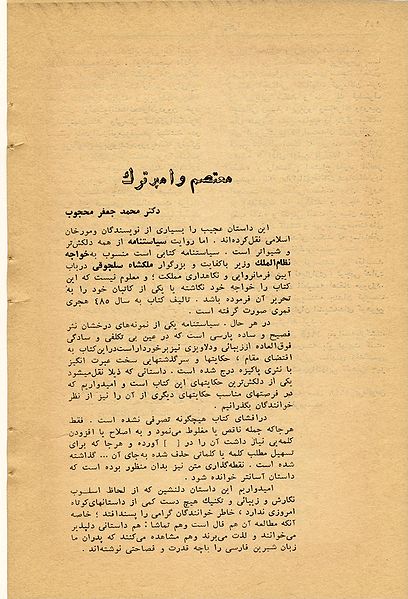 معتصم و امیر ترک
دکتر محمد جعفر محجوب
این داستان عجیب را بسیاری از نویسندگان ومورخان
اسلامی نقل‌کرده‌اند . اما روایت سیاستنامه از همه دلکش‌تر
و شیواتر است . سیاستنامه کتابی است منسوب به‌خواجه
نظام‌الملک وزیر باکفایت و بزرگوار ملکشاه سلجوقی درباب
آیین فرمانروایی و نگاهداری مملکت ؛ و معلوم نیست که این
کتاب را خواجه خود نگاشته یا یکی از کاتبان خود را به
تحریر آن فرموده باشد . تالیف کتاب به سال ۴۸۵ هجری
قمری صورت گرفته است .
در هر حال . سیاستنامه یکی از نمونه‌های درخشان نثر
فصیح و ساده پارسی است که در عین بی تکلفی و سادگی
فوق‌العاده اززیبائی ودلاویزی نیزبرخورداراست‌دراین‌کتاب به
اقتضای مقام ، حکایتها و سرگذشتهایی سخت عبرت انگیز
با نثری پاکیزه درج شده است . داستانی که ذیلا نقل‌میشود
یکی از دلکش‌ترین حکایتهای این کتاب است و امیدواریم که
در فرصتهای مناسب حکایتهای دیگری از آن را نیز از نظر
خوانندگان بگذرانیم .
درافشای کتاب هیچگونه تصرفی نشده است . فقط
هرجاکه جمله ناقص یا مغلوط می‌نمود و به اصلاح یا افزودن
کلمه‌یی نیاز داشت آن را در [ ] آورده و هرجا که برای
تسهیل مطلب کلمه یا کلماتی حذف شده به‌جای آن ... گذاشته
شده است . نقطه‌گذاری متن نیز بدان منظور بوده است که
داستان آسانتر خوانده شود .
امیدواریم این داستان دلنشین که از لحاظ اسلوب
نگارش و زیبائی و تکنیک هیچ دست کمی از داستانهای‌کوتاه
امروزی ندارد ، خاطر خوانندگان گرامی را پسندافتد ؛ خاصه
آنکه مطالعه آن هم فال است وهم تماشا : هم داستانی دلپذیر
می‌خوانند و لذت می‌برند وهم مشاهده می‌کنند که پدران ما
زبان شیرین فارسی را باچه قدرت و فصاحتی نوشته‌اند .